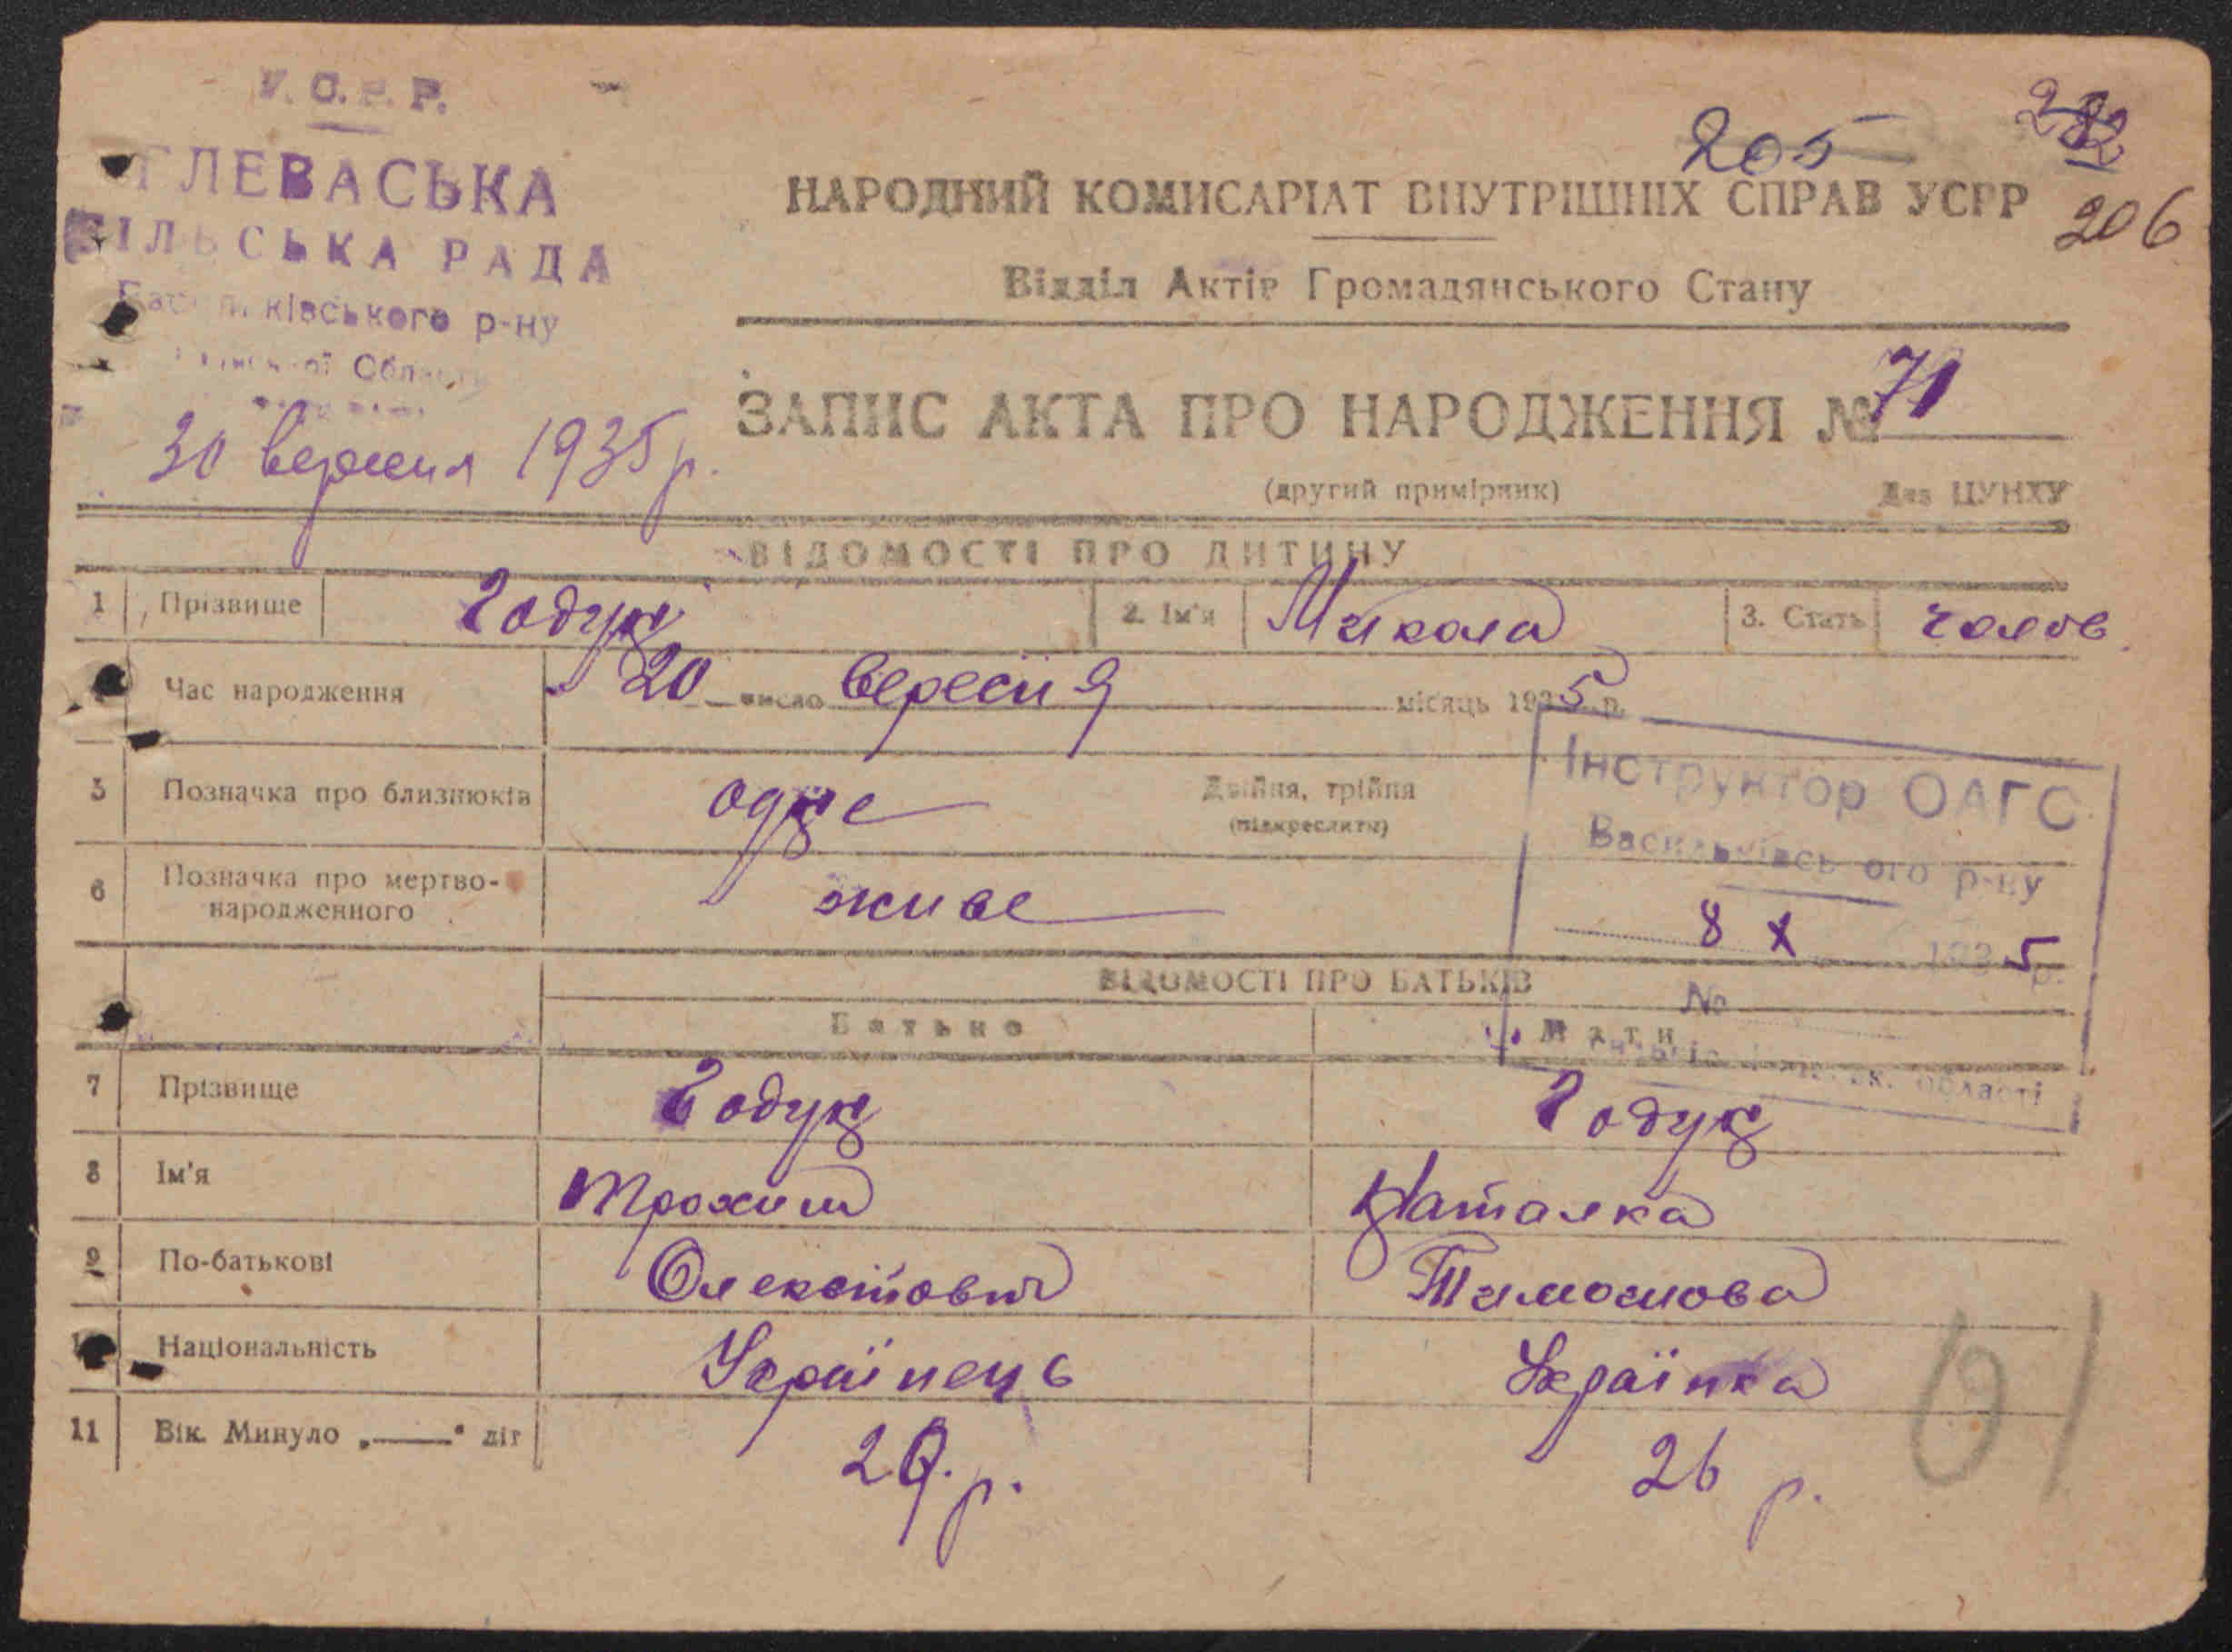 У.С.Р.Р.
ГЛЕВАСЬКА
СІЛЬСЬКА РАДА
Васильківського р-ну
Області
30 вересня 1935 р.
205
282
206
НАРОДНИЙ КОМИСАРІАТ ВНУТРІШНІХ СПРАВ УСРР
Відділ Актів Громадянського Стану
ЗАПИС АКТА ПРО НАРОДЖЕННЯ № 71
(другий примірник) Для ЦУНХУ
ВІДОМОСТІ ПРО ДИТИНУ
1 Прізвище Годун 2. Ім'я Микола 3. Стать чолов
Час народження 20 число вересня місяць 1935 р.
5 Позначка про близнюків одне Двійня, трійня
(підкреслити)
6 Позначка про мертво-
народженного живе
Інструктор ОАГС
Васильківського р-ну
8 X 1935 р.
№
області
ВІДОМОСТІ ПРО БАТЬКІВ
Батько Мати
7 Прізвище Годун Годун
8 Ім'я Трохим Наталка
9 По-батькові Олексійович Тимошова
Національність Українець Українка
11 Вік. Минуло „——" літ 29. р. 26 р.
01